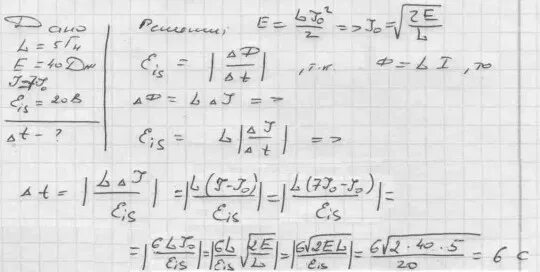 Дано
L = 5Гн
E = 40Дж
I=7I₀
Ɛis = 20В
Δt - ?
Решение: E = LI₀²/2 => I₀ = √(2E/L)
Ɛis = |ΔФ/Δt|, т.к. Ф = LI, то
ΔФ = LΔI =>
Ɛis = L|ΔI/Δt| =>
Δt = |LΔI/Ɛis| = |L(I-I₀)/Ɛis| = |L(7I₀-I₀)/Ɛis| =
= |6LI₀/Ɛis| = |6L/Ɛis √(2E/L)| = |6√(2EL)/Ɛis| = 6√(2·40·5)/20 = 6 с